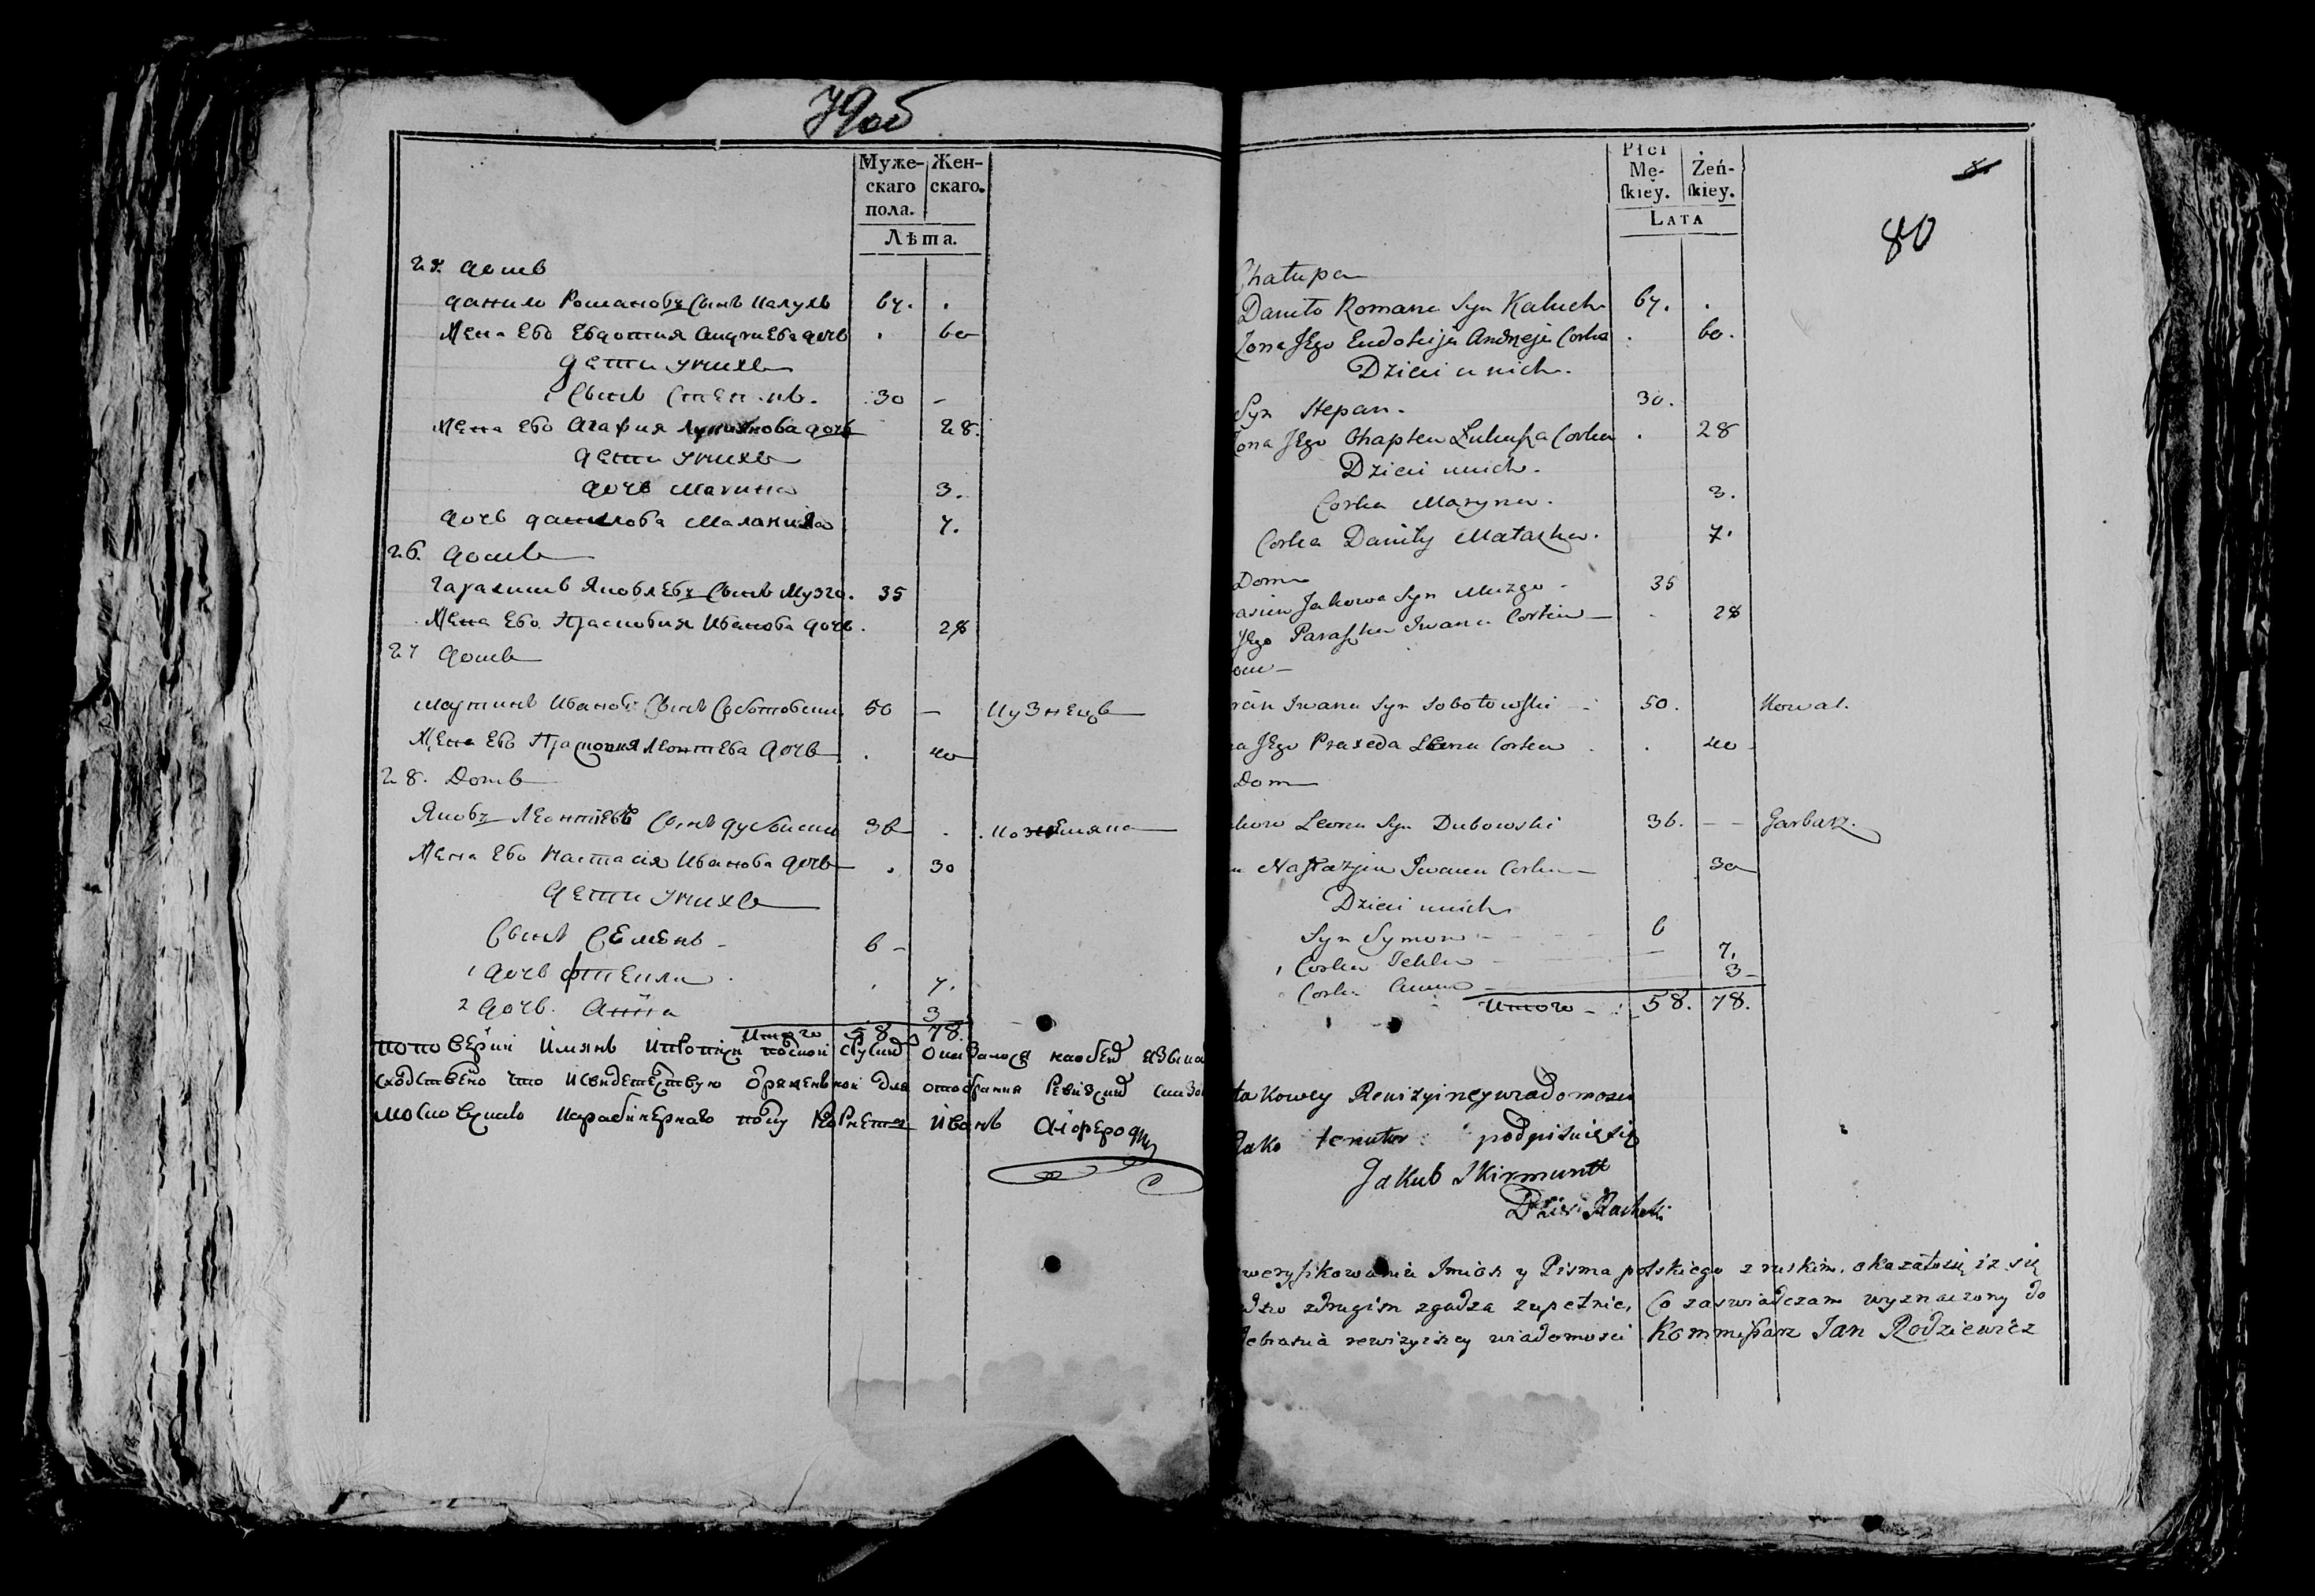 79об
Муже- Жен-
скаго скаго.
пола.
Лѣта.
25. домъ
данило Романовъ Сынъ Калухъ 67. .
Жена Ево Евдотия Андриева дочь . 60
дети у нихъ
Сынъ Степанъ. 30 -
Жена Ево Агафия дочь 28.
дети у нихъ
дочь Марина 3.
дочь данилова Малания 7.
26. домъ
Гарасимъ Яковлевъ Сынъ Музго. 35
Жена Ево Прасковия Иванова дочь. 28
27 домъ
Мартинъ Ивановъ Сынъ Соботовски 50 - Кузнецъ
Жена Ево Прасковия Леонтева дочь . 40
28. Домъ
Яковъ Леонтіевъ Сынъ дубовски 36 . Кожемяка
Жена Ево Настасія Иванова дочь . 30
дети у нихъ
Сынъ Семенъ - 6 -
1 дочь Фтекла . . 7.
2 дочь. Анна 3
Итого 58 78.
по поверки Имянъ оказалося
сходствено что и свидетельствую для отобрания Ревизских
Московскаго Карабинернаго полку Корнетъ Иванъ
Płci
Mę- Żeń-
ſkiey. ſkiey.
LATA
80
Chałupa
Daniło Romana Syn Kałuch 67. .
Żona Jego Eudokija Andrzeja Corka . 60.
Dzieci u nich.
Syn Stepan. 30.
ona Jego Łukaſza Corka . 28
Dzieci u nich.
Corka Maryna. 3.
Corka Daniły Małaſzka. 7.
Dom
asim Jakowa Syn Muzgo - 35
Jego Paraſka Iwana Corka - . 28
om -
Iwana Syn Sobotowſki - 50. Kowal.
na Jego Praxeda Leona Corka . . 40 -
Dom
kow Leona Syn Dubowski 36. - - Garbarz.
a Naſtazija Iwana Corka - 30
Dzieci u nich
Syn Symon - 6
1 Corka Tekla - 7.
Corka Anna - 3 -
Итого - : 58. 78.
takowey Rewizyiney wiadomosci
Jako tenutor podpisuię się
Jakub Skirmuntt
weryfikowania Imion y Pisma polskiego z ruskim. okazało się iż się
zdrugim zgadza zupełnie, Co zaswiadczam wyznaczony do
ebrania rewizyiney wiadomosci Kommiſsarz Jan Rodziewicz